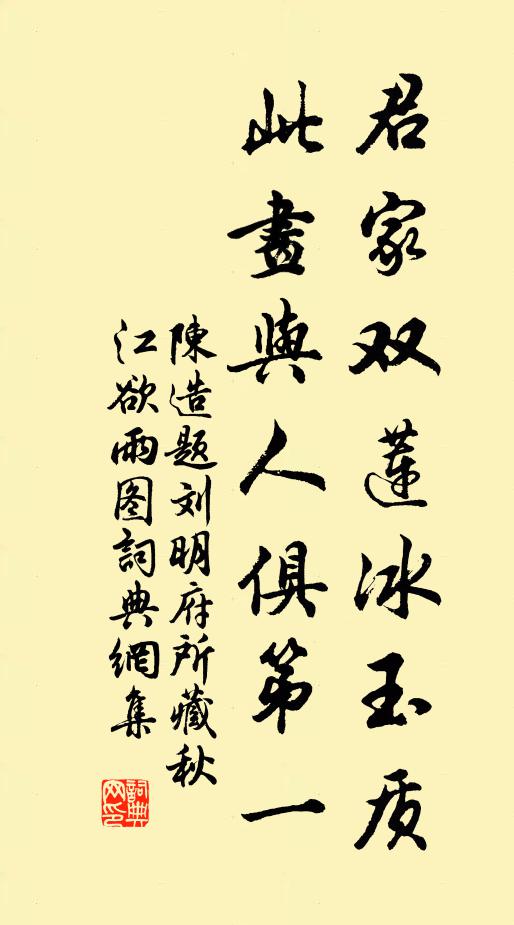 君家双蓮冰玉质
此畫與人俱第一
陳造题刘明府所藏秋
江欲雨图詞典網集
詞典
网印